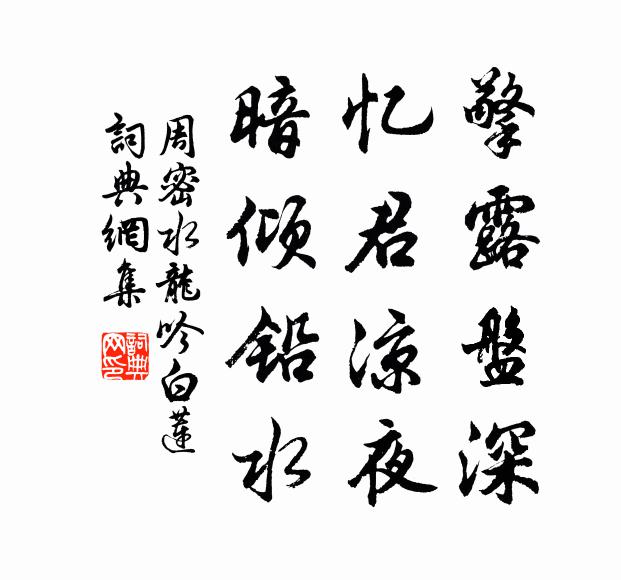 擎露盤深
忆君凉夜
暗倾铅水
周密水龍吟白蓮
詞典網集
詞典网印